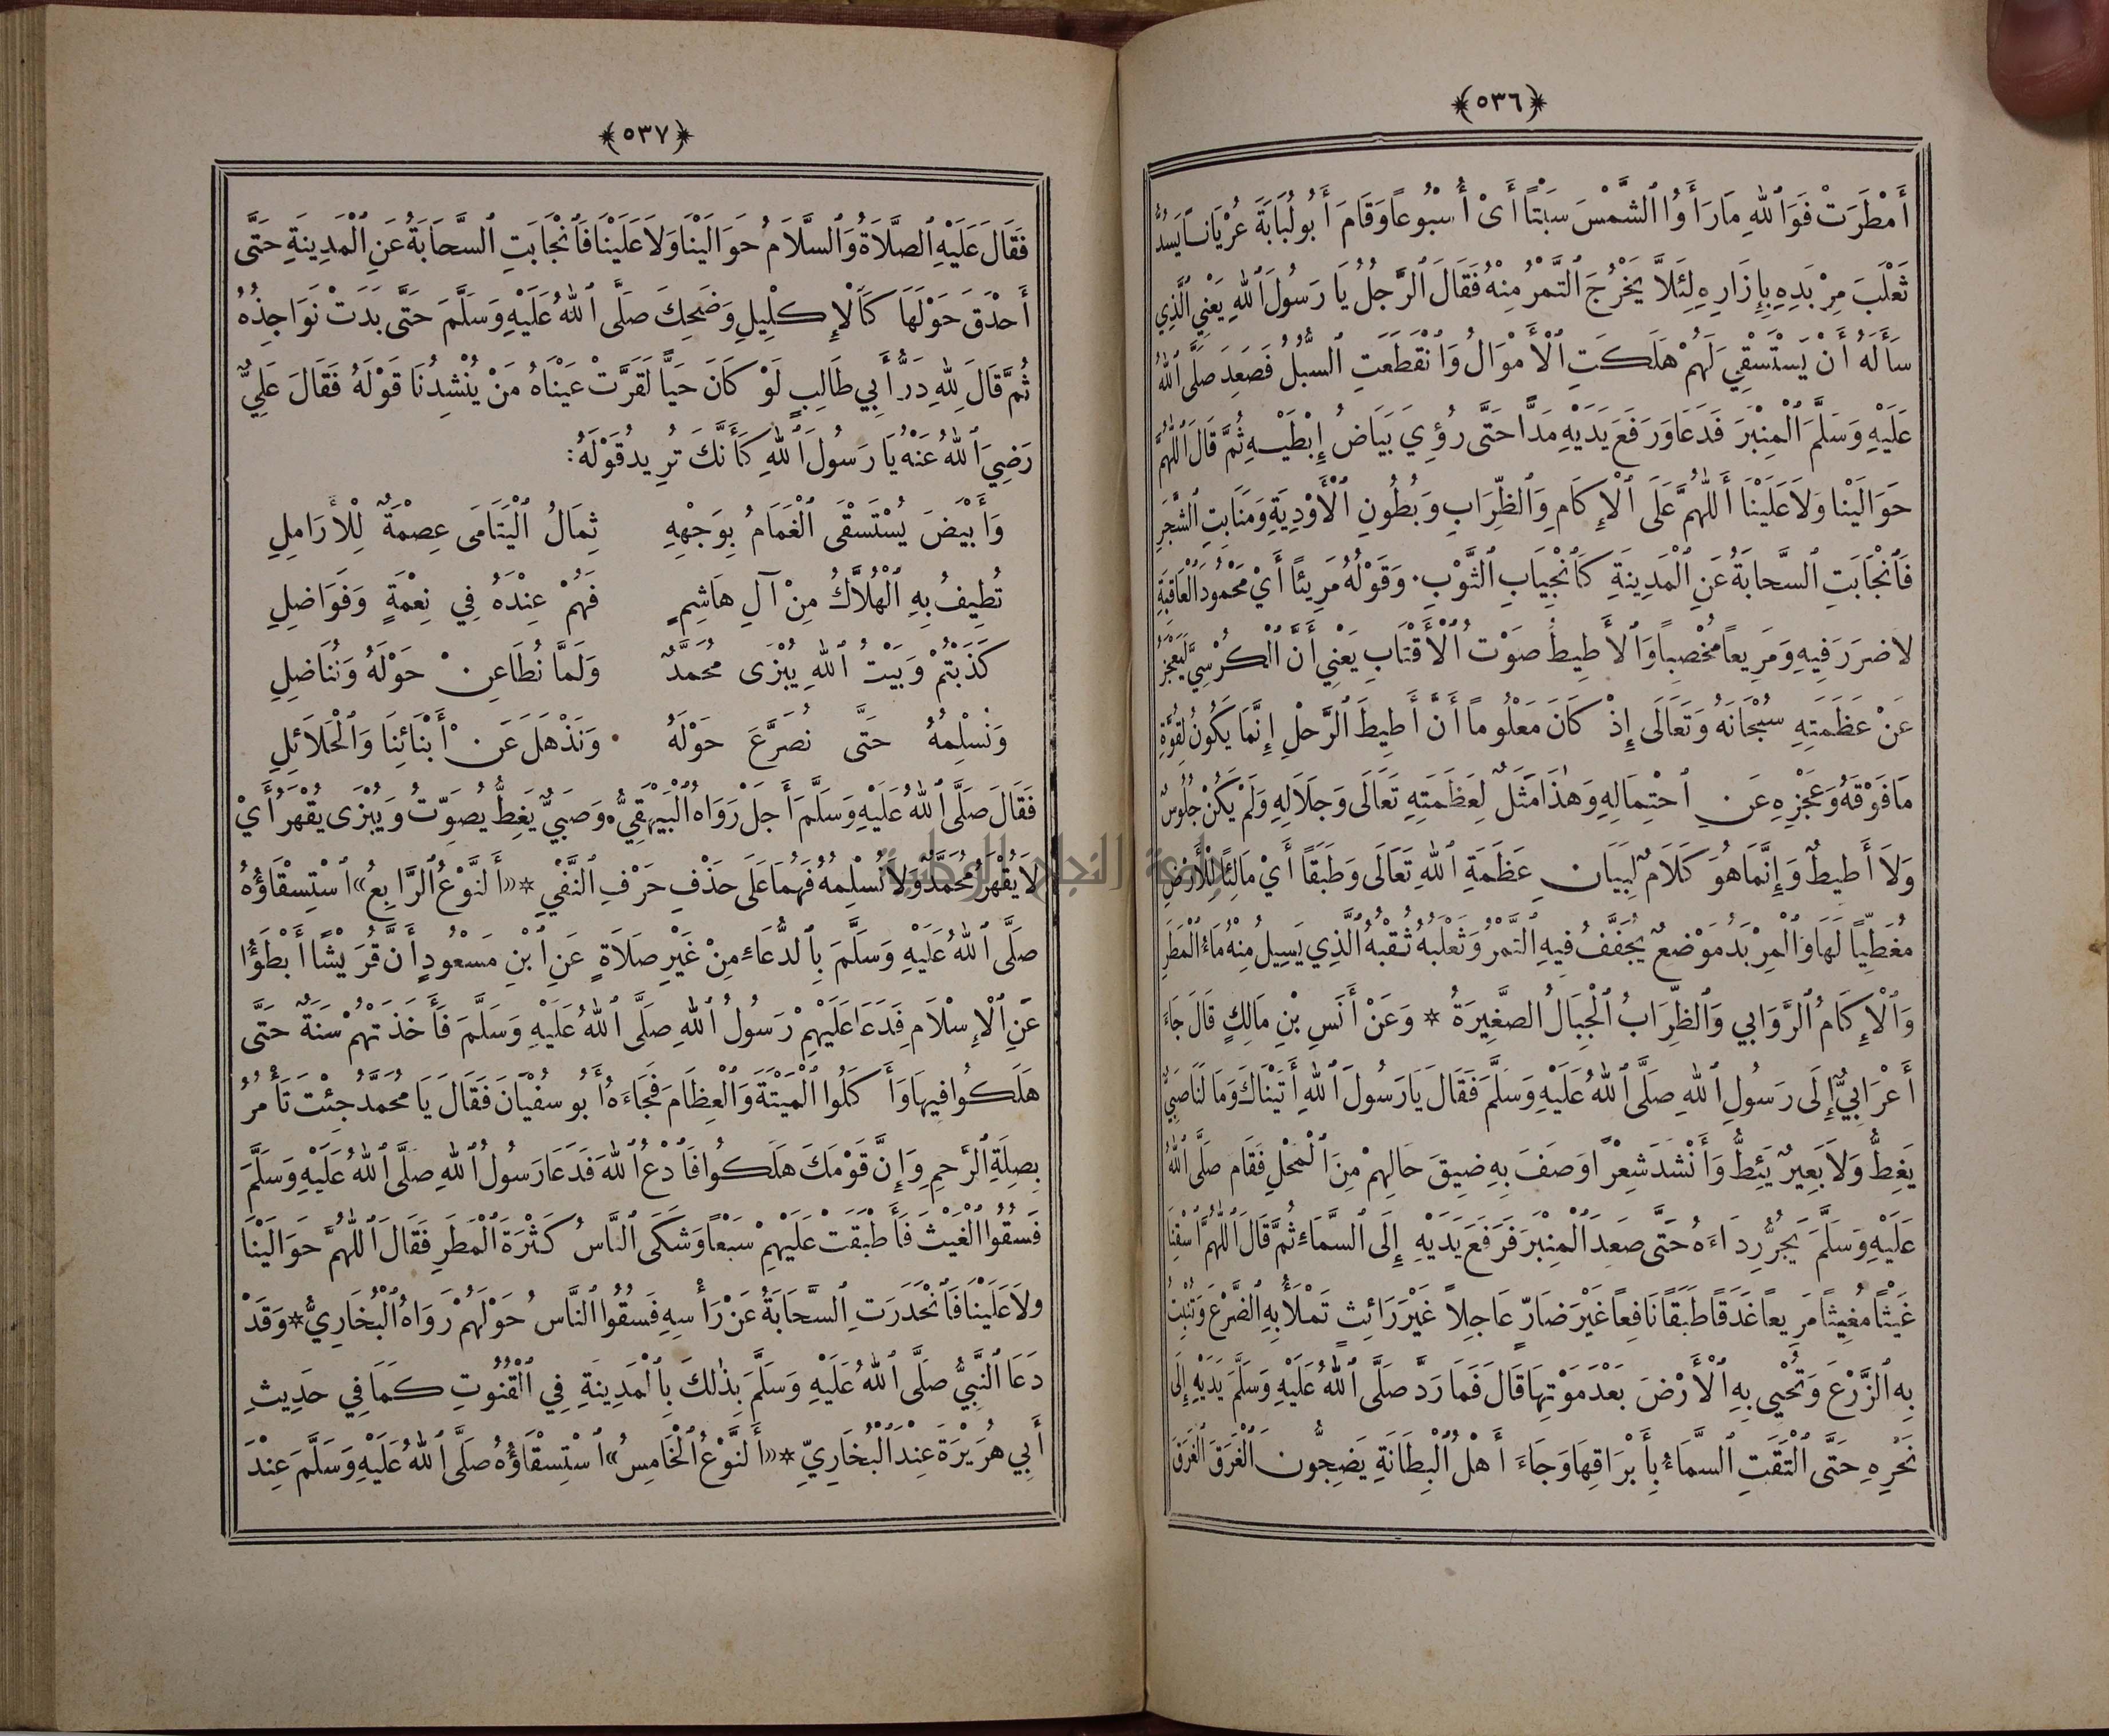 ﴿٥٣٦﴾
أَمْطَرَتْ فَوَٱللهِ مَا رَأَوُا ٱلشَّمْسَ سَبْتًا أَىْ أُسْبُوعًا وَقَامَ أَبُو لُبَابَةَ عُرْيَانًا يَسُدُّ
ثَعْلَبَ مِرْبَدِهِ بِإِزَارِهِ لِئَلاَّ يَخْرُجَ ٱلتَّمْرُ مِنْهُ فَقَالَ ٱلرَّجُلُ يَا رَسُولَ ٱللهِ يَعْنِي ٱلَّذِي
سَأَلَهُ أَنْ يَسْتَسْقِيَ لَهُمْ هَلَكَتِ ٱلْأَمْوَالُ وَٱنْقَطَعَتِ ٱلسُّبُلُ فَصَعِدَ صَلَّى ٱللهُ
عَلَيْهِ وَسَلَّمَ ٱلْمِنْبَرَ فَدَعَا وَرَفَعَ يَدَيْهِ مَدًّا حَتَّى رُؤِيَ بَيَاضُ إِبْطَيْهِ ثُمَّ قَالَ ٱللّٰهُمَّ
حَوَالَيْنَا وَلاَ عَلَيْنَا أَللّٰهُمَّ عَلَى ٱلْإِكَامِ وَٱلظِّرَابِ وَبُطُونِ ٱلْأَوْدِيَةِ وَمَنَابِتِ ٱلشَّجَرِ
فَٱنْجَابَتِ ٱلسَّحَابَةُ عَنِ ٱلْمَدِينَةِ كَٱنْجِيَابِ ٱلثَّوْبِ. وَقَوْلُهُ مَرِيئًا أَيْ مَحْمُودَ ٱلْعَاقِبَةِ
لاَ ضَرَرَ فِيهِ وَمَرِيعًا مُخْصِبًا وَٱلاَطِيطُ صَوْتُ ٱلْأَقْتَابِ يَعْنِي أَنَّ ٱلْكُرْسِيَّ لَيَعْجِزُ
عَنْ عَظَمَتِهِ سُبْحَانَهُ وَتَعَالَى إِذْ كَانَ مَعْلُومًا أَنَّ أَطِيطَ ٱلرَّحْلِ إِنَّمَا يَكُونُ لِقُوَّةِ
مَا فَوْقَهُ وَعَجْزِهِ عَنِ ٱحْتِمَالِهِ وَهٰذَا مَثَلٌ لِعَظَمَتِهِ تَعَالَى وَجَلاَلِهِ وَلَمْ يَكُنْ جُلُوسٌ
وَلاَ أَطِيطٌ وَإِنَّمَا هُوَ كَلاَمٌ لِبَيَانِ عَظَمَةِ ٱللهِ تَعَالَى وَطَبَقًا أَيْ مَالِئًا لِلْأَرْضِ
مُغَطِّيًا لَهَا وَٱلْمِرْبَدُ مَوْضِعٌ يُجَفَّفُ فِيهِ ٱلتَّمْرُ وَثَعْلَبُهُ ثُقْبُهُ ٱلَّذِي يَسِيلُ مِنْهُ مَاءُ ٱلْمَطَرِ
وَٱلْإِكَامُ ٱلرَّوَابِي وَٱلظِّرَابُ ٱلْجِبَالُ ٱلصَّغِيرَةُ * وَعَنْ أَنَسِ بْنِ مَالِكٍ قَالَ جَاءَ
أَعْرَابِيٌّ إِلَى رَسُولِ ٱللهِ صَلَّى ٱللهُ عَلَيْهِ وَسَلَّمَ فَقَالَ يَا رَسُولَ ٱللهِ أَتَيْنَاكَ وَمَا لَنَا صَبِيٌّ
يَغِطُّ وَلاَ بَعِيرٌ يَئِطُّ وَأَنْشَدَ شِعْرًا وَصَفَ بِهِ ضِيقَ حَالِهِمْ مِنَ ٱلْمَحْلِ فَقَامَ صَلَّى ٱللهُ
عَلَيْهِ وَسَلَّمَ يَجُرُّ رِدَاءَهُ حَتَّى صَعِدَ ٱلْمِنْبَرَ فَرَفَعَ يَدَيْهِ إِلَى ٱلسَّمَاءِ ثُمَّ قَالَ ٱللّٰهُمَّ ٱسْقِنَا
غَيْثًا مُغِيثًا مَرِيعًا غَدَقًا طَبَقًا نَافِعًا غَيْرَ ضَارٍّ عَاجِلاً غَيْرَ رَائِثٍ تَمْلَأُ بِهِ ٱلضَّرْعَ وَتُنْبِتُ
بِهِ ٱلزَّرْعَ وَتُحْيِي بِهِ ٱلْأَرْضَ بَعْدَ مَوْتِهَا قَالَ فَمَا رَدَّ صَلَّى ٱللهُ عَلَيْهِ وَسَلَّمَ يَدَيْهِ إِلَى
نَحْرِهِ حَتَّى ٱلْتَقَتِ ٱلسَّمَاءُ بِأَبْرَاقِهَا وَجَاءَ أَهْلُ ٱلْبِطَانَةِ يَضِجُّونَ ٱلْغَرَقَ ٱلْغَرَقَ
﴿٥٣٧﴾
فَقَالَ عَلَيْهِ ٱلصَّلاَةُ وَٱلسَّلاَمُ حَوَالَيْنَا وَلاَ عَلَيْنَا فَٱنْجَابَتِ ٱلسَّحَابَةُ عَنِ ٱلْمَدِينَةِ حَتَّى
أَحْدَقَ حَوْلَهَا كَٱلْإِكْلِيلِ وَضَحِكَ صَلَّى ٱللهُ عَلَيْهِ وَسَلَّمَ حَتَّى بَدَتْ نَوَاجِذُهُ
ثُمَّ قَالَ لِلهِ دَرُّ أَبِي طَالِبٍ لَوْ كَانَ حَيًّا لَقَرَّتْ عَيْنَاهُ مَنْ يُنْشِدُنَا قَوْلَهُ فَقَالَ عَلِيٌّ
رَضِيَ ٱللهُ عَنْهُ يَا رَسُولَ ٱللهِ كَأَنَّكَ تُرِيدُ قَوْلَهُ:
وَأَبْيَضَ يُسْتَسْقَى ٱلْغَمَامُ بِوَجْهِهِ ثِمَالُ ٱلْيَتَامَى عِصْمَةٌ لِلْأَرَامِلِ
تُطِيفُ بِهِ ٱلْهُلاَّكُ مِنْ آلِ هَاشِمٍ فَهُمْ عِنْدَهُ فِي نِعْمَةٍ وَفَوَاضِلِ
كَذَبْتُمْ وَبَيْتُ ٱللهِ يُبْزَى مُحَمَّدٌ وَلَمَّا نُطَاعِنْ حَوْلَهُ وَنُنَاضِلِ
وَنُسْلِمُهُ حَتَّى نُصَرَّعَ حَوْلَهُ وَنَذْهَلَ عَنْ أَبْنَائِنَا وَٱلْحَلاَئِلِ
فَقَالَ صَلَّى ٱللهُ عَلَيْهِ وَسَلَّمَ أَجَلْ رَوَاهُ ٱلْبَيْهَقِيُّ. وَصَبِيٌّ يَغِطُّ يُصَوِّتُ وَيُبْزَى يُقْهَرُ أَيْ
لاَ يُقْهَرُ مُحَمَّدٌ وَلاَ نُسْلِمُهُ فَهُمَا عَلَى حَذْفِ حَرْفِ ٱلنَّفْيِ * «أَلنَّوْعُ ٱلرَّابِعُ» ٱسْتِسْقَاؤُهُ
صَلَّى ٱللهُ عَلَيْهِ وَسَلَّمَ بِٱلدُّعَاءِ مِنْ غَيْرِ صَلاَةٍ عَنِ ٱبْنِ مَسْعُودٍ أَنَّ قُرَيْشًا أَبْطَؤُا
عَنِ ٱلْإِسْلاَمِ فَدَعَا عَلَيْهِمْ رَسُولُ ٱللهِ صَلَّى ٱللهُ عَلَيْهِ وَسَلَّمَ فَأَخَذَتْهُمْ سَنَةٌ حَتَّى
هَلَكُوا فِيهَا وَأَكَلُوا ٱلْمَيْتَةَ وَٱلْعِظَامَ فَجَاءَهُ أَبُو سُفْيَانَ فَقَالَ يَا مُحَمَّدُ جِئْتَ تَأْمُرُ
بِصِلَةِ ٱلرَّحِمِ وَإِنَّ قَوْمَكَ هَلَكُوا فَٱدْعُ ٱللهَ فَدَعَا رَسُولُ ٱللهِ صَلَّى ٱللهُ عَلَيْهِ وَسَلَّمَ
فَسُقُوا ٱلْغَيْثَ فَأَطْبَقَتْ عَلَيْهِمْ سَبْعًا وَشَكَى ٱلنَّاسُ كَثْرَةَ ٱلْمَطَرِ فَقَالَ ٱللّٰهُمَّ حَوَالَيْنَا
وَلاَ عَلَيْنَا فَٱنْحَدَرَتِ ٱلسَّحَابَةُ عَنْ رَأْسِهِ فَسُقُوا ٱلنَّاسُ حَوْلَهُمْ رَوَاهُ ٱلْبُخَارِيُّ * وَقَدْ
دَعَا ٱلنَّبِيُّ صَلَّى ٱللهُ عَلَيْهِ وَسَلَّمَ بِذٰلِكَ بِٱلْمَدِينَةِ فِي ٱلْقُنُوتِ كَمَا فِي حَدِيثِ
أَبِي هُرَيْرَةَ عِنْدَ ٱلْبُخَارِيِّ * «أَلنَّوْعُ ٱلْخَامِسُ» ٱسْتِسْقَاؤُهُ صَلَّى ٱللهُ عَلَيْهِ وَسَلَّمَ عِنْدَ